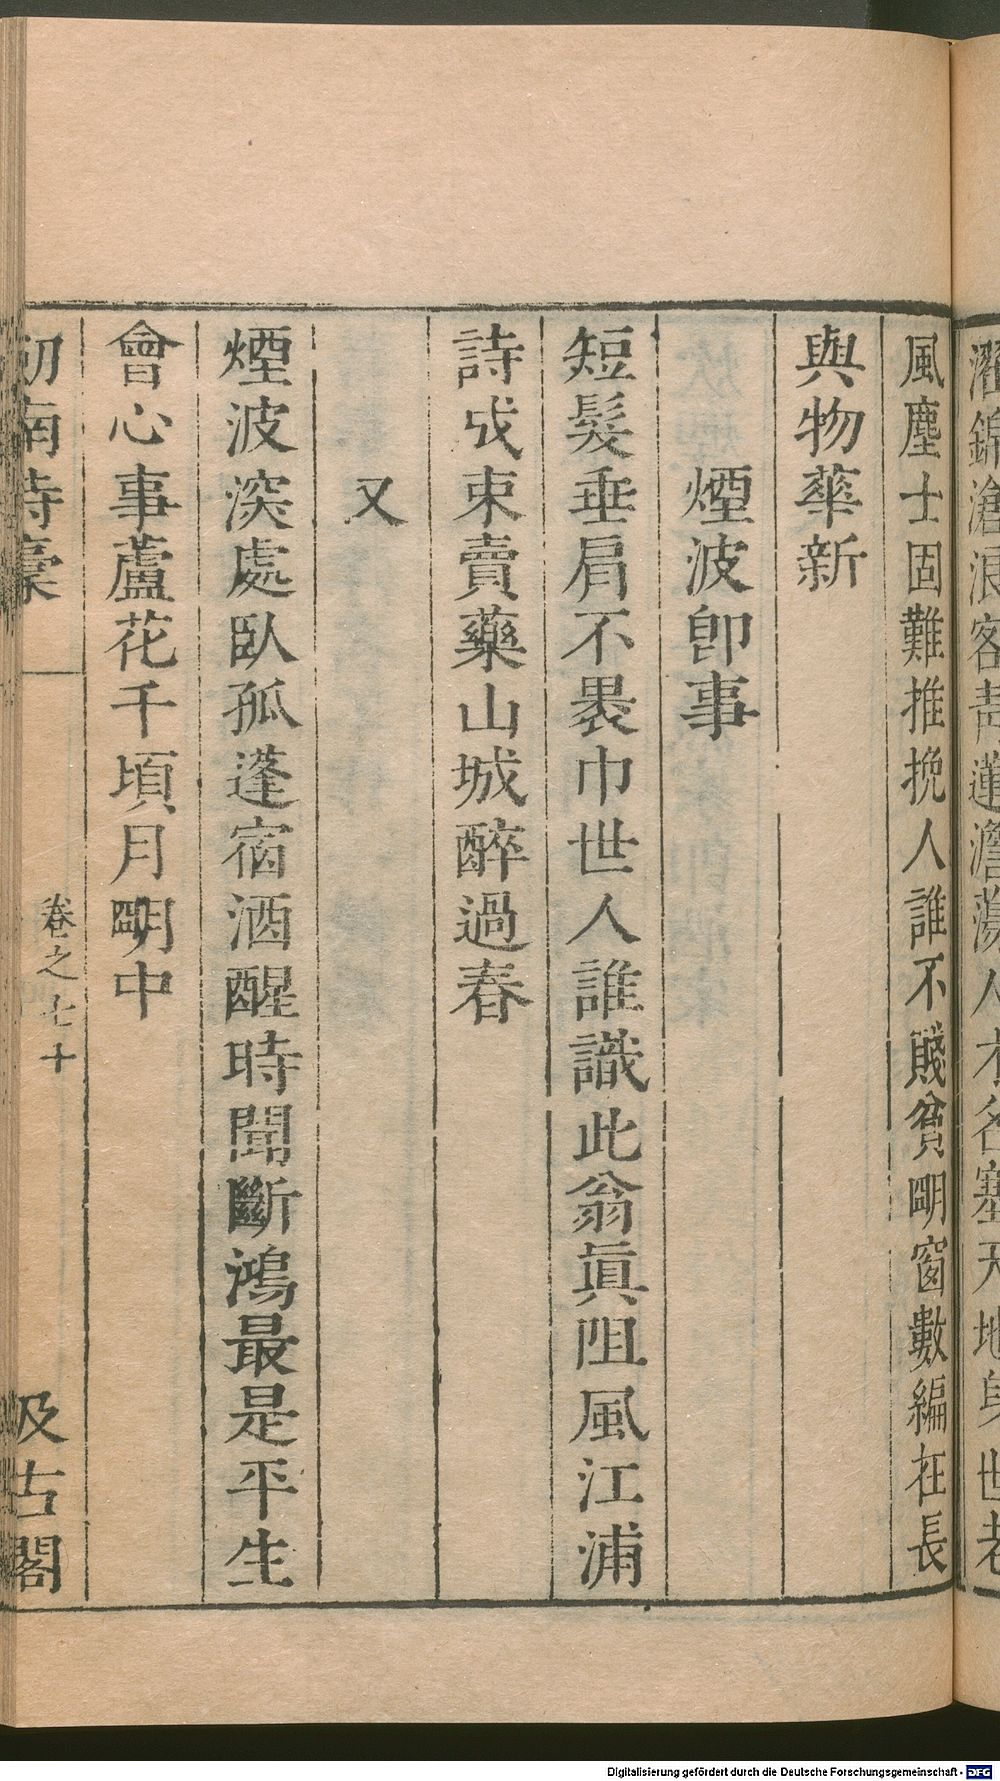 濯錦滄浪客青蓮澹蕩人才名塞天地身世老
風塵士固難推挽人誰不賤貧明窗數編在長
與物華新
煙波卽事
短髮垂肩不裹巾世人誰識此翁眞阻風江浦
詩成束賣藥山城醉過春
又
煙波深處臥孤蓬宿酒醒時聞斷鴻最是平生
會心事蘆花千頃月明中
劎南詩稾
卷之七十
汲古閣
Digitalisierung gefördert durch die Deutsche Forschungsgemeinschaft - DFG